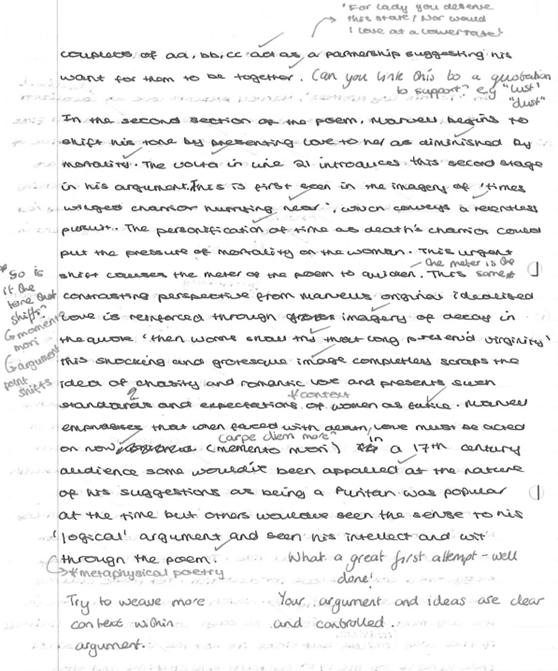 'For lady you deserve
this state / Nor would
I love at a lower rate!
couplets of aa, bb, cc act as a partnership suggesting his
want for them to be together. Can you link this to a quotation
to support? e.g "lust"
"dust"
In the second section of the poem, Marvell begins to
shift his tone by presenting love to her as diminished by
mortality. The volta in line 21 introduces this second stage
in his argument. This is first seen in the imagery of 'times
winged charriot hurrying near', which conveys a relentless
pursuit. The personification of time as death's charriot could
put the pressure of mortality on the woman. This urgent
the meter is the
same*
shift causes the meter of the poem to quicken. This
* So is
it the
tone that
shifts?
moment
mori
argument
point
shifts
contrasting perspective from Marvells original idealised
love is reinforced through imagery of decay in
the quote 'then worms shall try that long preserv'd virginity'
this shocking and grotesque image completley scraps the
idea of chasity and romantic love and presents such
*context
standards and expectations of women as futile. Marvell
emphasises that when faced with death, love must be acted
carpe diem more"
on now (memento mori) in a 17th century
audience some would've been appalled at the nature
of his suggestions as being a Puritan was popular
at the time but others would've seen the sense to his
'logical' argument and seen his intellect and wit
through the poem.
*metaphysical poetry
What a great first attempt - well
done!
Try to weave more
context within
argument.
Your argument and ideas are clear
and controlled.